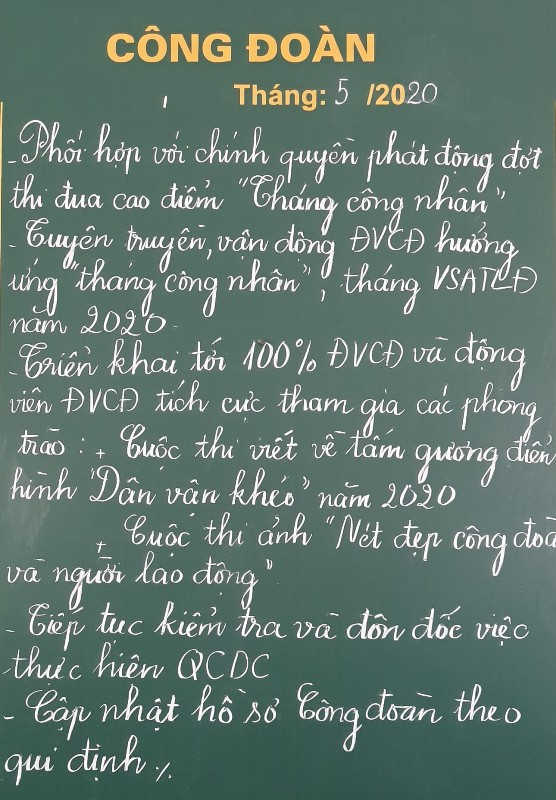 CÔNG ĐOÀN
Tháng: 5 /2020
- Phối hợp với chính quyền phát động đợt
thi đua cao điểm "Tháng công nhân"
- Tuyên truyền, vận động ĐVCĐ hưởng
ứng "tháng công nhân", tháng VSATLĐ
năm 2020.
- Triển khai tới 100% ĐVCĐ và động
viên ĐVCĐ tích cực tham gia các phong
trào : + Cuộc thi viết về tấm gương điển
hình "Dân vận khéo" năm 2020
+ Cuộc thi ảnh "Nét đẹp công đoà
và người lao động"
- Tiếp tục kiểm tra và đôn đốc việc
thực hiện QCDC
- Cập nhật hồ sơ Công đoàn theo
qui định ./.